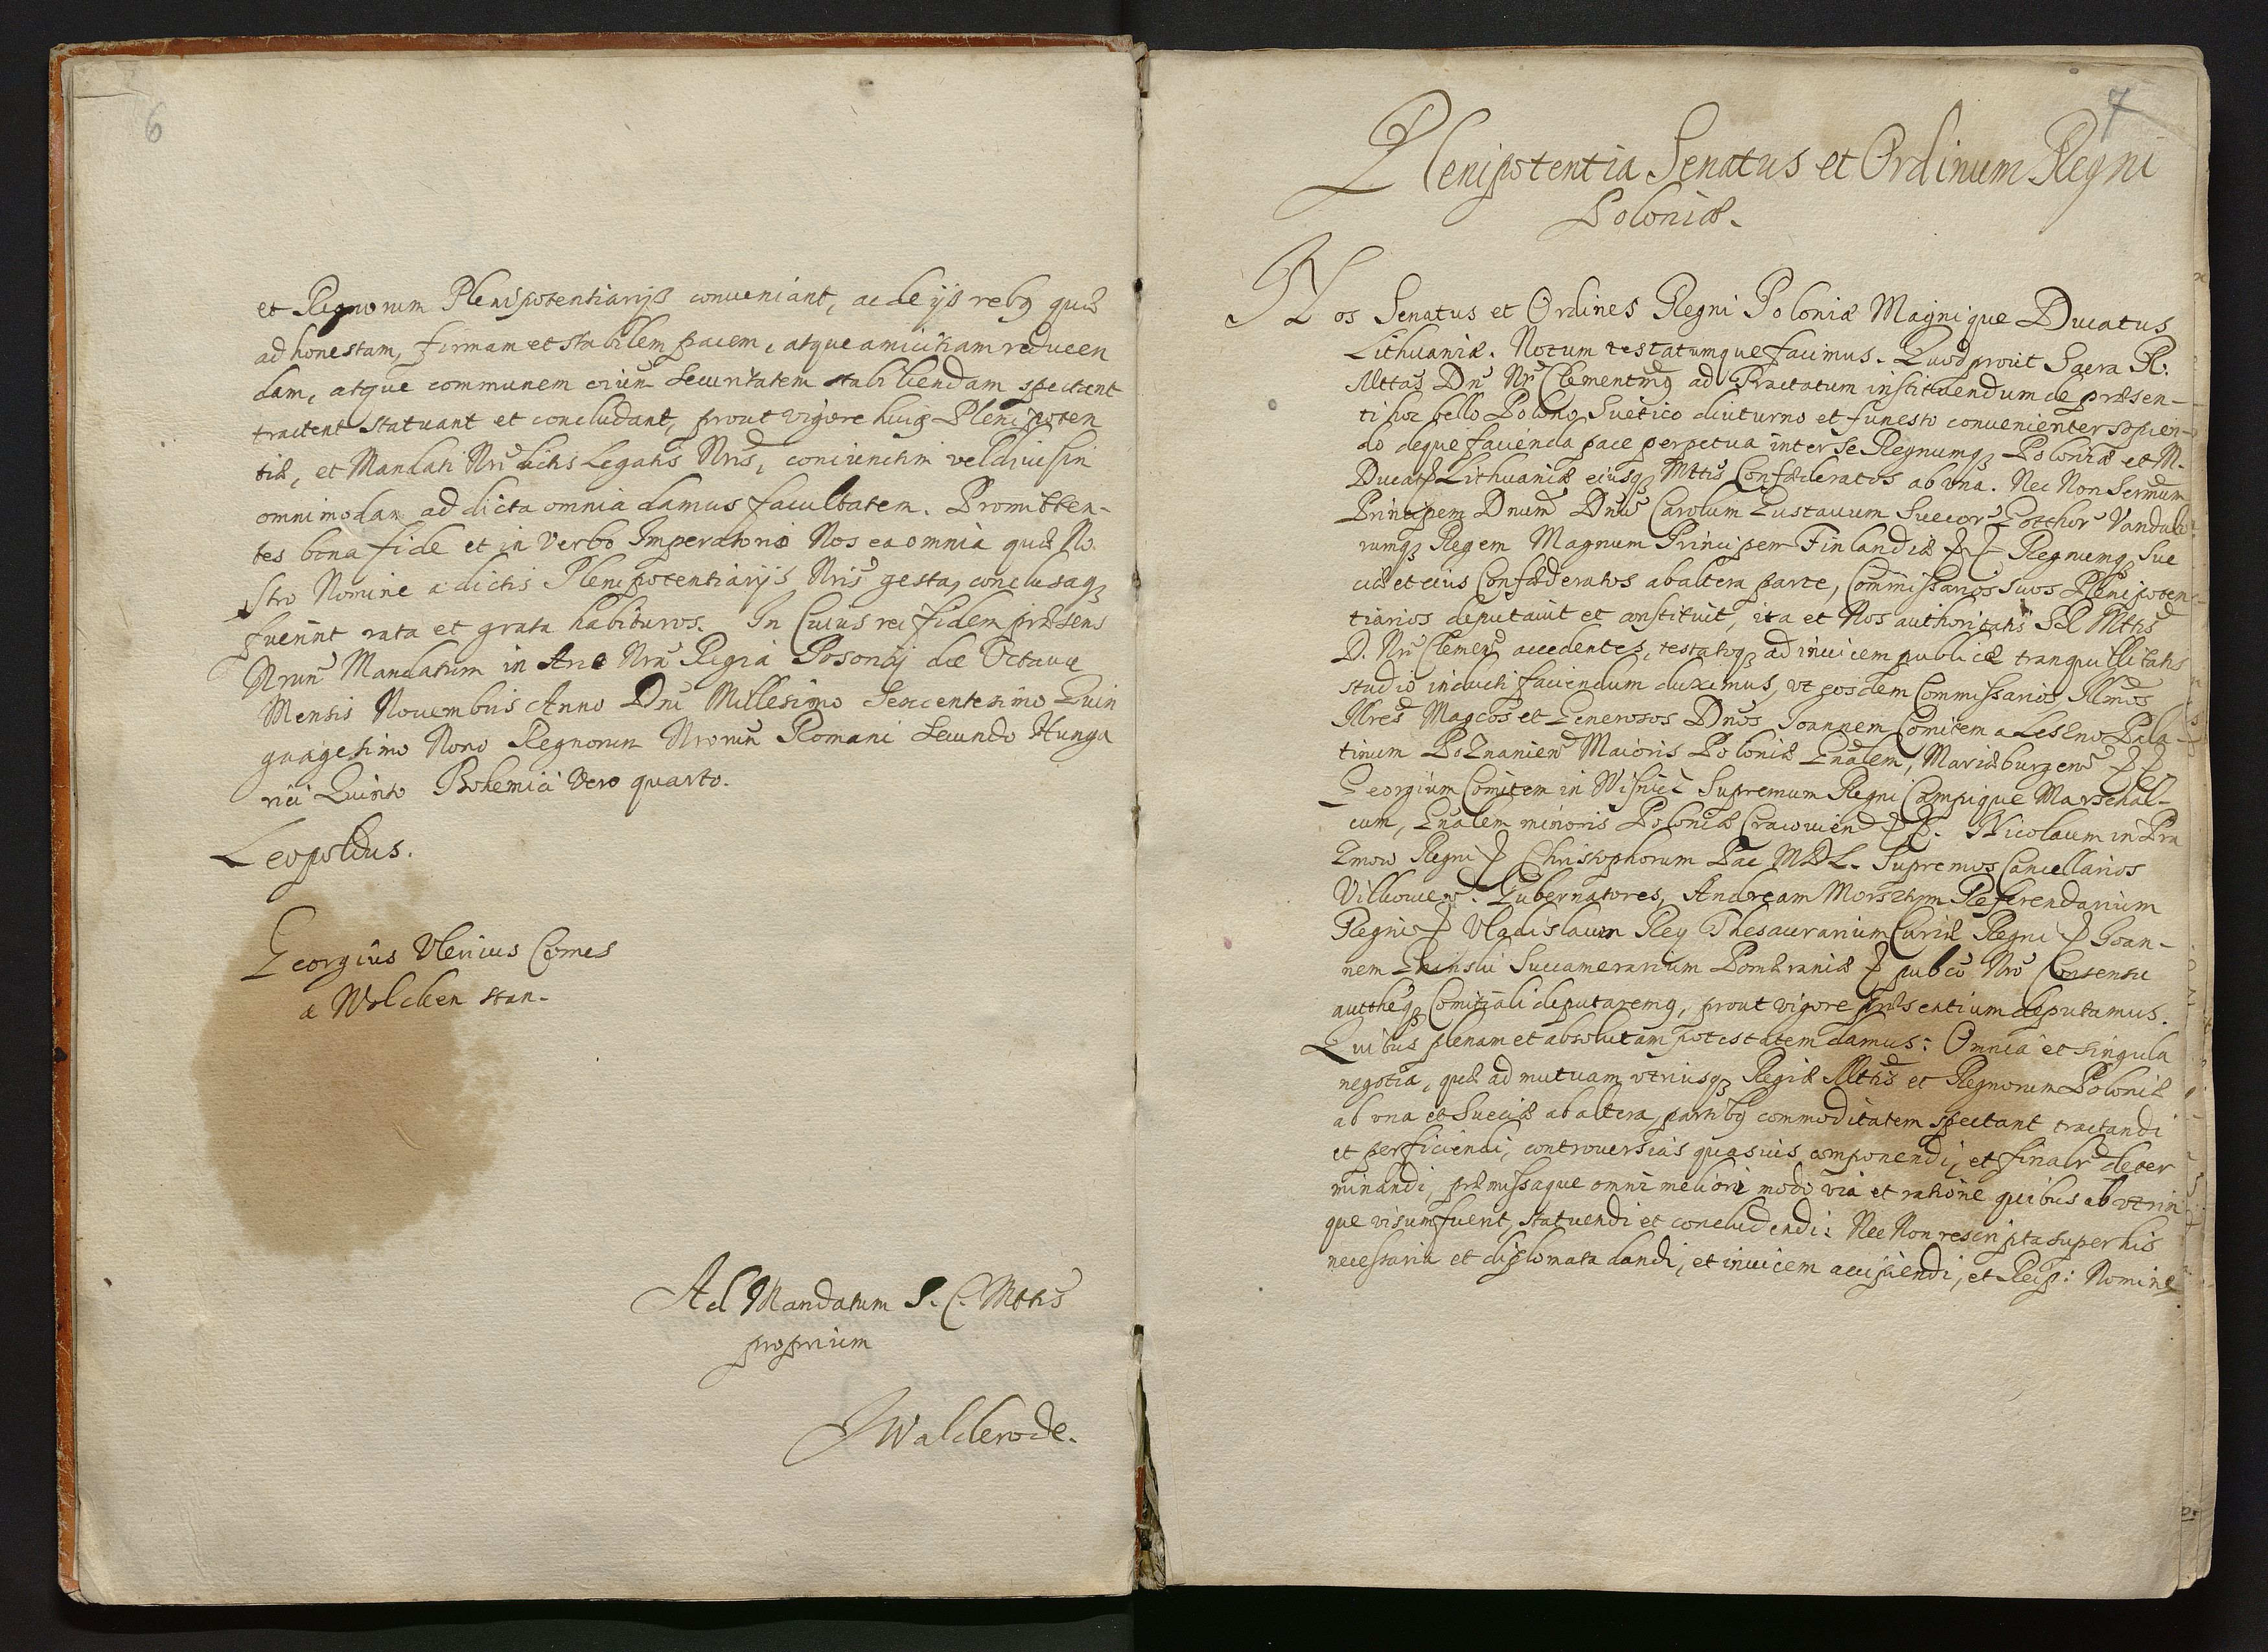 6
et Regnorum Plenipotentiarijs conueniant, ac de ijs rebq quæ
ad honestam, firmam et stabilem pacem, atque amicitiam reducen
dam, atque communem eorum securitatem stabiliendam spectent
tractent statuant et concludant, prout vigore huiq Plenipoten
tiæ, et Mandati Nri dictis Legatis Nris, coniunctim vel diuisim
omnimodam ad dicta omnia damus facultatem. Promitten-
tes bona fide et in Verbo Imperatorio Nos ea omnia quæ No.
stro Nomine a dictis Plenipotentiarijs Nris gesta, conclusaqz
fuerint rata et grata habituros. In Cuius rei fidem præsens
Nrum Mandatum in Arce Nra Regia Posonij die Octaua
Mensis Nouembris Anno Dni Millesimo Sexcentesimo Quin
quagesimo Nono Regnorum Nrorum Romani Secundo Hunga
rici Quinto Bohemici Vero quarto.
Leopoldus.
Georgius Vlricus Comes
a Wolcken stan-
Ad Mandatum S. C. Mttis
proprium
Walderode.
7
Plenipotentia Senatus et Ordinum Regni
Poloniæ.
Nos Senatus et Ordines Regni Poloniæ Magnique Ducatus
Lithuaniæ. Notum testatumque facimus. Quod prout Sacra R.
Mttas Dn Nr Clementmq ad Tractatum instituendum de præsen-
ti hoc bello Polono Suetico diuturno et funesto conuenienter sopien-
do deque facienda pace perpetua inter se Regnumqz Poloniæ et M.
Ducatq Lithuaniæ eiusqz Mttis Confæderatos ab vna. Nec Non Sermum
Principem Dnum Dnu Carolum Gustauum Suecor Gotthor Vandalo
rumqz Regem Magnum Principem Finlandiæ Regnumqz Sue
ciæ et eius Confæderatos ab altera parte, Commissarios suos Plenipoten
tiarios deputauit et constituit, ita et Nos authoritatis S R Mttis
D. Nri Clemen accedentes, testatoqz ad inuicem publicæ tranquillitatis
studio inducti faciendum duximus, vt eosdem Commissarios Illmos
Illres Magcos et Generosos Dnos Joannem Comitem a Leszno Pala-
tinum Poznanien Maioris Poloniæ Gnalem, Mariæburgen
Georgium Comitem in Wisnicz Supremum Regni Campique Marschal-
cum, Gnalem minoris Poloniæ Cracouien. Nicolaum in Pra
zmow Regni Christophorum Pac MDL. Supremos Cancellarios
Gubernatores, Andream Morsztyn Referendarium
Regni Vladislaum Rey Thesaurarium Curiæ Regni Joan-
nem Succamerarium Pomeraniæ publco Nro Consensu
auttheqz Comitiali deputaremq, prout vigore præsentium deputamus.
Quibus plenam et absolutam potestatem damus: Omnia et singula
negotia, quæ ad mutuam vtriusqz Regiæ Mttis et Regnorum Poloniæ
ab vna et Sueciæ ab altera partibq commoditatem spectant tractandi
et perficiendi, controuersias quasuis componendi, et finalr deter
minandi præmissaque omni meliori modo via et ratione quibus ab vtrin
que visum fuerit, statuendi et concludendi: Nec Non rescripta super his
necessaria et diplomata dandi, et inuicem accipiendi, et Reip: Nomine